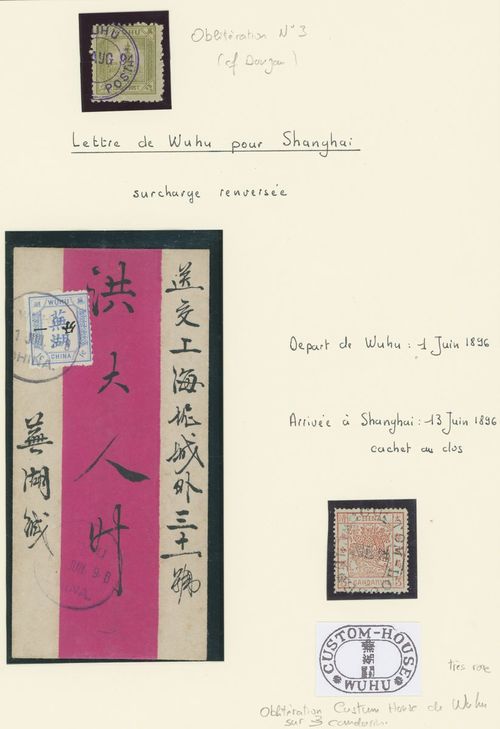 UHU
AUG 94
POSTA
Oblitération N°3
(cf Dougan)
Lettre de Wuhu pour Shanghai
surcharge renversée
WUHU
蕪湖
一分
CHINA
1 JUN
CHINA
送交上海坭城外三十一號
洪大人时
蕪湖緘
JUN 96
Depart de Wuhu : 1 Juin 1896
Arrivée à Shanghai : 13 Juin 1896
cachet au clos
CHINA
CANDARINS
CUSTOM-HOUSE
蕪湖關
WUHU
très rare
Oblitération Custom House de Wuhu
sur 3 candarin.